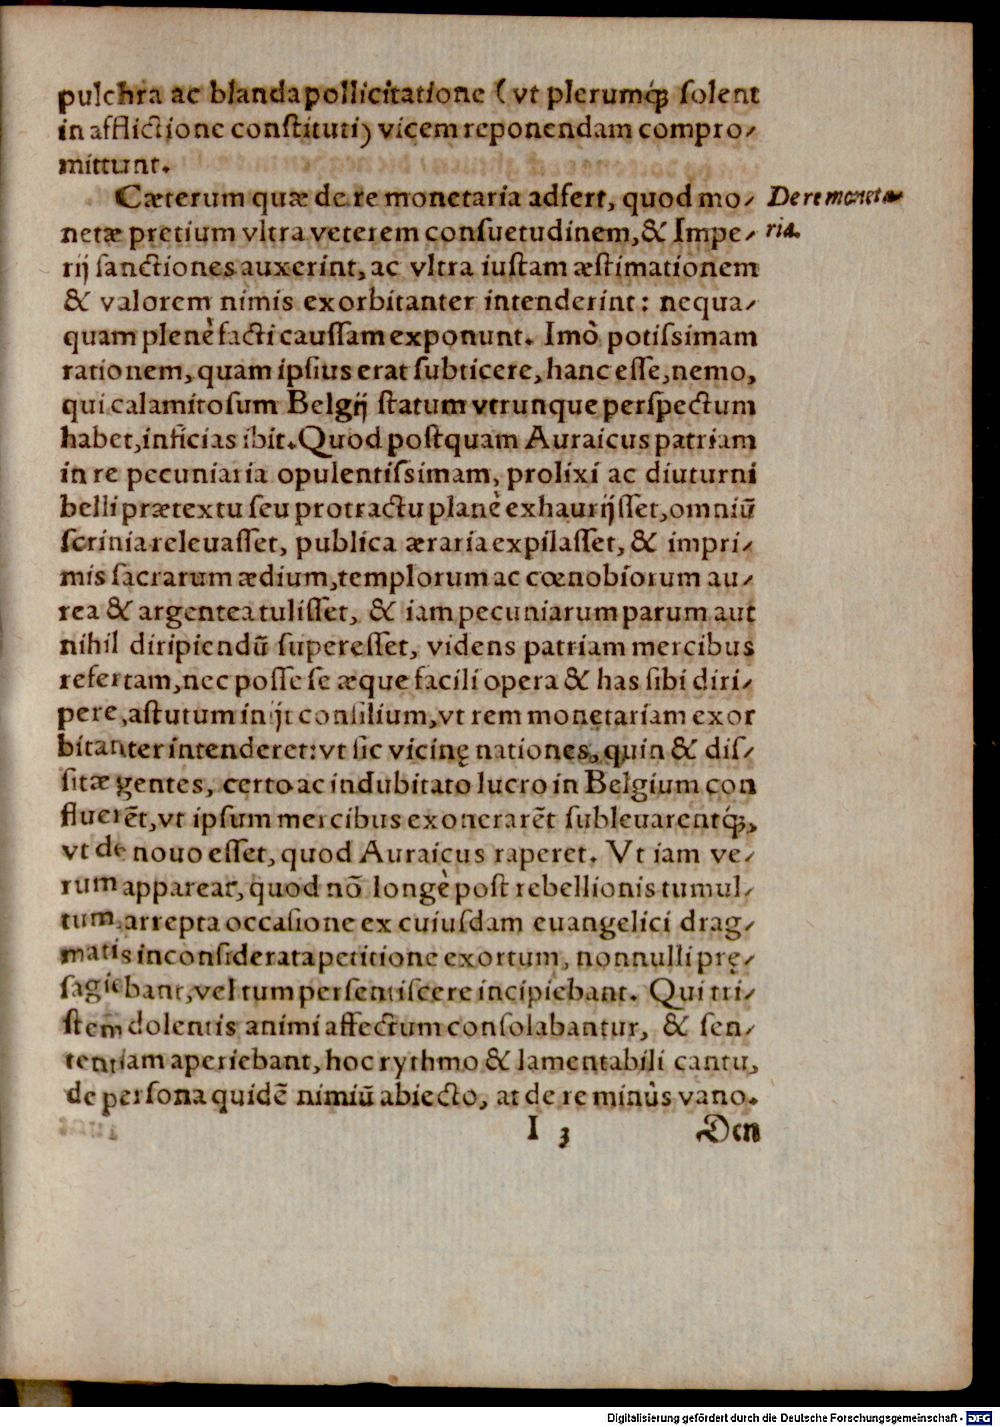 pulchra ac blanda pollicitatione (vt plerumq́ꝫ solent
in afflictione constituti) vicem reponendam compro⸗
mittunt.
Cæterum quæ de re monetaria adfert, quod mo⸗
De re moneta⸗
netæ pretium vltra veterem consuetudinem, & Impe⸗
ria.
rij sanctiones auxerint, ac vltra iustam æstimationem
& valorem nimis exorbitanter intenderint: nequa⸗
quam plenè facti caussam exponunt. Imò potissimam
rationem, quam ipsius erat subticere, hanc esse, nemo,
qui calamitosum Belgij statum vtrunque perspectum
habet, inficias ibit. Quod postquam Auraicus patriam
in re pecuniaria opulentissimam, prolixi ac diuturni
belli prætextu seu protractu planè exhaurijsset, omniū
scrinia releuasset, publica æraria expilasset, & impri⸗
mis sacrarum ædium, templorum ac cœnobiorum au⸗
rea & argentea tulisset, & iam pecuniarum parum aut
nihil diripiendū superesset, videns patriam mercibus
refertam, nec posse se æque facili opera & has sibi diri⸗
pere, astutum inijt consilium, vt rem monetariam exor
bitanter intenderet: vt sic vicinę nationes, quin & dis⸗
sitæ gentes, certo ac indubitato lucro in Belgium con
fluerēt, vt ipsum mercibus exonerarēt subleuarentq́ꝫ,
vt de nouo esset, quod Auraicus raperet. Vt iam ve⸗
rum appareat, quod nō longè post rebellionis tumul⸗
tum arrepta occasione ex cuiusdam euangelici drag⸗
matis inconsiderata petitione exortum, nonnulli prę⸗
sagiebant, vel tum persentiscere incipiebant. Qui tri⸗
stem dolentis animi affectum consolabantur, & sen⸗
tentiam aperiebant, hoc rythmo & lamentabili cantu,
de persona quidē nimiū abiecto, at de re minùs vano.
I 3 Den
Digitalisierung gefördert durch die Deutsche Forschungsgemeinschaft - DFG